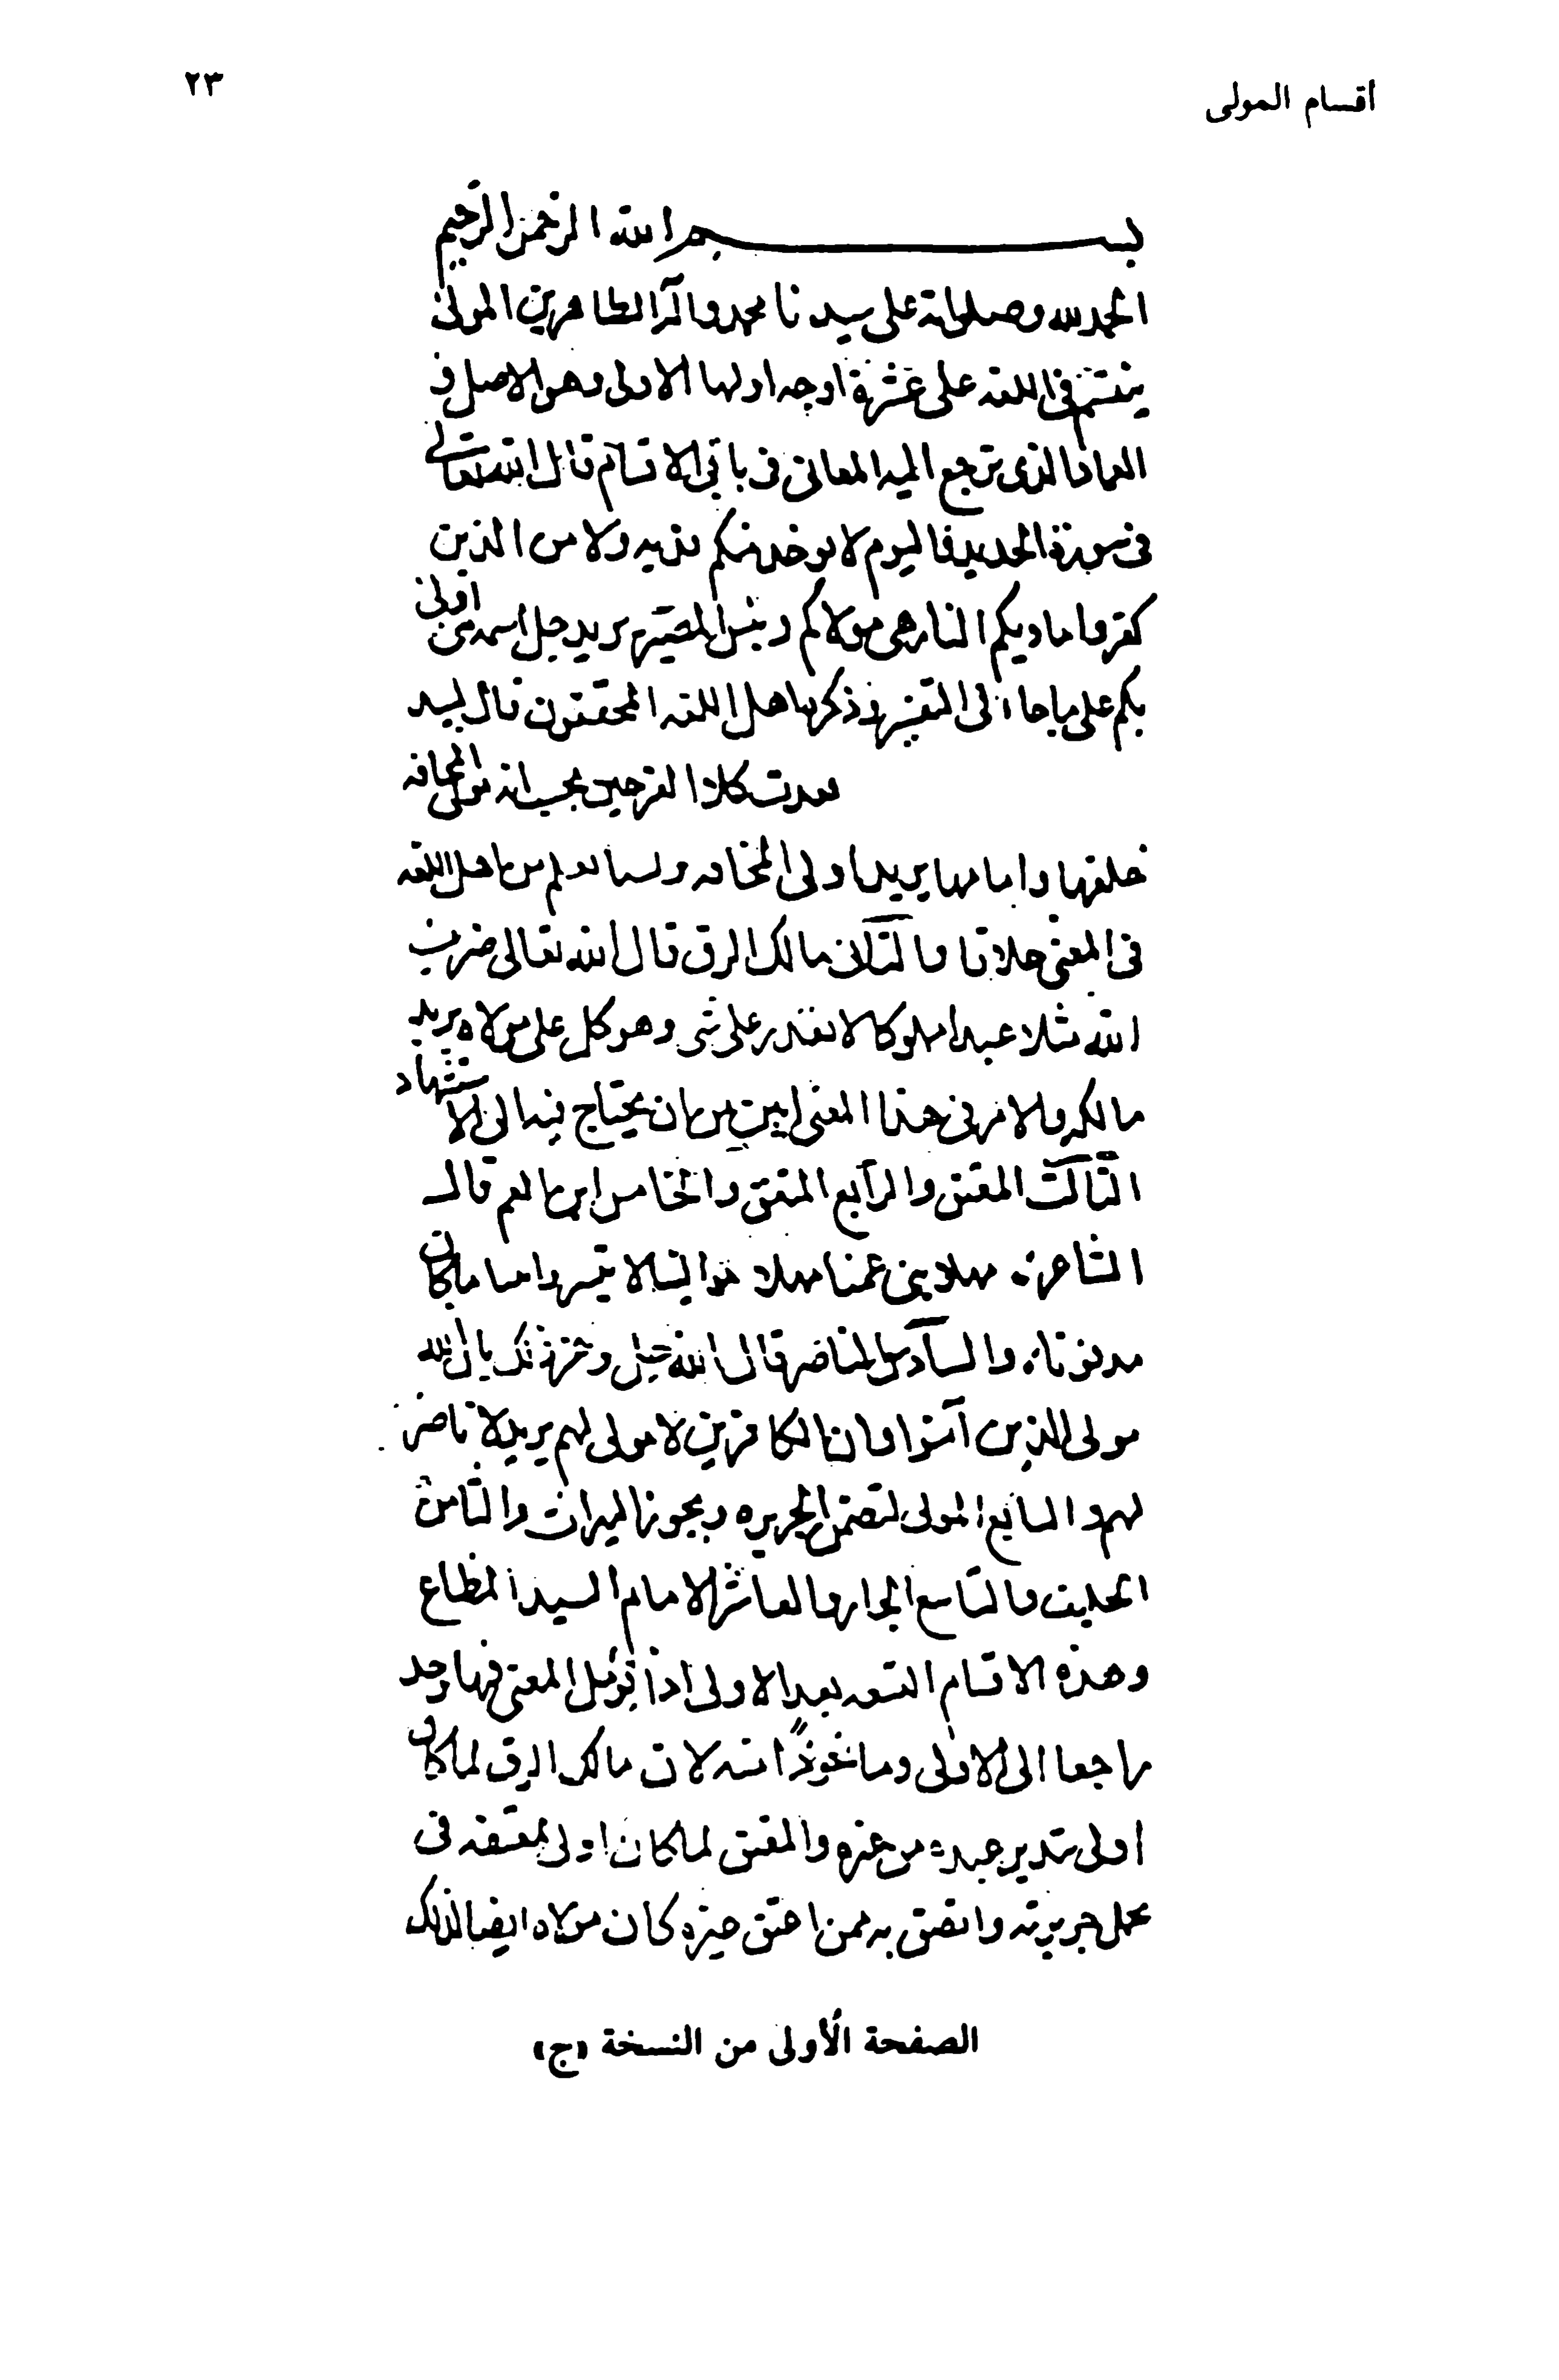 اقسام المولى
٢٣
بسم الله الرحمن الرحيم
الحمد لله وصلواته على سيدنا محمد وآله الطاهرين المولى
ينقسم في اللغة على عشرة اوجه اولها الاولى وهو الاصل و
العماد الذي ترجع اليه المعاني في باقي الاقسام قال الله تعالى
في سورة الحديد فاليوم لا يوخذ منكم فديه ولا من الذين
كفروا ماويكم النار هي مولاكم وبئس المصير يريد جل اسمه هي اولى
بكم على ما جاء في التفسير وذكره اهل اللغه المحققون قال لبيد
فعدت كلا الفرجين تحسب انه مولى المخافه
خلفها وامامها يريد اولى المخافه ولسنا نعلم من اهل اللغه
في المعنى خلافا والثاني مالك الرق قال الله تعالى ضرب
الله مثلا عبدا مملوكا لا يقدر على شي وهو كل على مولاه يريد
مالكه والامر في هذا المعنى ابين من ان يحتاج فيه الى الاستشهاد
الثالث المعتق والرابع المعتق والخامس ابن العم قال
الشاعر مهلا بني عمنا مهلا موالينا لا تنشروا بيننا ما كان
مدفونا والسادس الناصر قال الله جل وعز ذلك بان الله
مولى الذين آمنوا وان الكافرين لا مولى لهم يريد لا ناصر
لهم والسابع المولى لتضمن الجريره ويحوز الميراث والثامن
الحليف والتاسع الجار والعاشر الامام السيد المطاع
وهذه الاقسام التسعه بعد الاولى اذا تؤمل المعنى فيها وجد
راجعا الى الاولى وماخوذا منه لان مالك الرق لما كان
اولى بتدبير عبده من غيره والمعتق لما كان اولى بمعتقه في
تحمل جريرته والصق به ممن اعتق غيره كان مولاه ايضا لذلك
الصفحة الأولى من النسخة «ج»